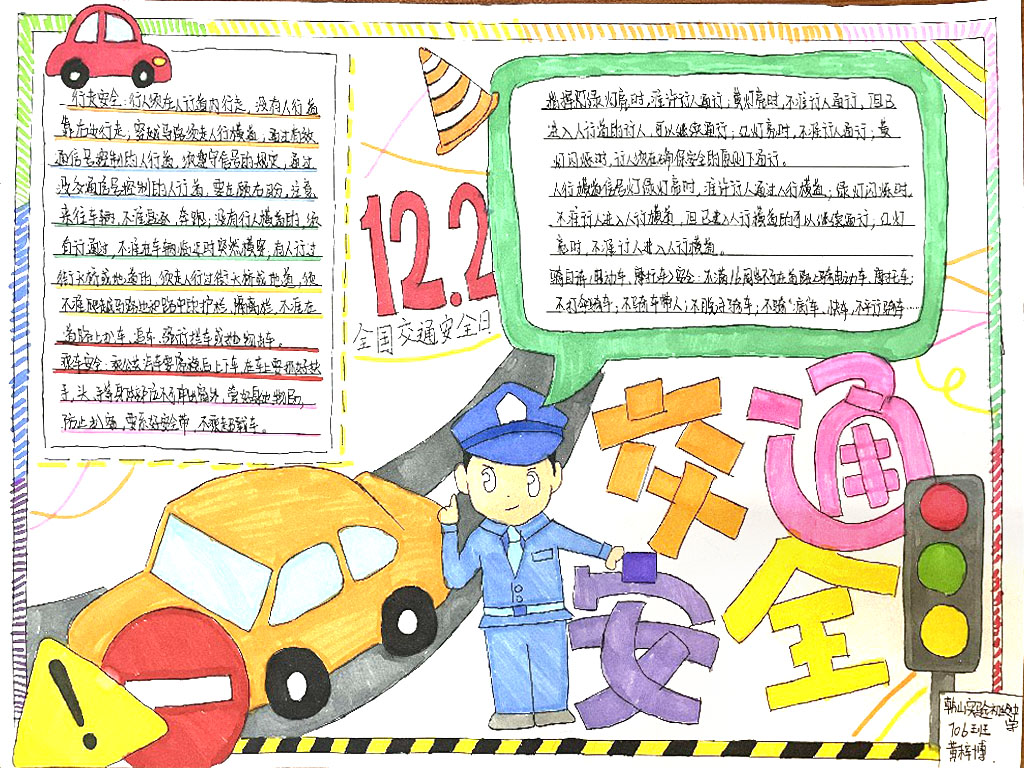 行走安全:行人须在人行道内行走,没有人行道
靠右边行走,穿越马路须走人行横道,通过有交
通信号控制的人行道,须遵守信号的规定,通过
没有交通信号控制的人行道,要左顾右盼,注意
来往车辆,不准追逐,奔跑;没有行人横道的,须
直行通过,不准在车辆临近时突然横穿,有人行过
街天桥或地道的,须走人行过街天桥或地道,须
不准爬越马路边和路中的护栏,隔离栏,不准在
道路上扒车,追车,强行拦车或抛物击车。
乘车安全:乘公共汽车要
手,头,手等身体部位不可伸出窗外,
防止扒窃,要系好安全带,不乘超载车。
12.2
全国交通安全日
根据灯绿灯亮时,准许行人通行;黄灯亮时,不准行人通行,但已
进入人行道的行人,可以继续通行;红灯亮时,不准行人通行;黄
灯闪烁时,行人须在确保安全的原则下通行。
人行横道信号灯绿灯亮时,准许行人通过人行横道;绿灯闪烁时,
不准行人进入人行横道,但已进入人行横道的可以继续通行;红灯
亮时,不准行人进入人行横道。
骑自行车,电动车,摩托车安全:不满16周岁不在道路上骑电动车,摩托车;
不打伞骑车;不骑车带人;不骑“病”车,快车,
交通
安全
706班
黄梓博